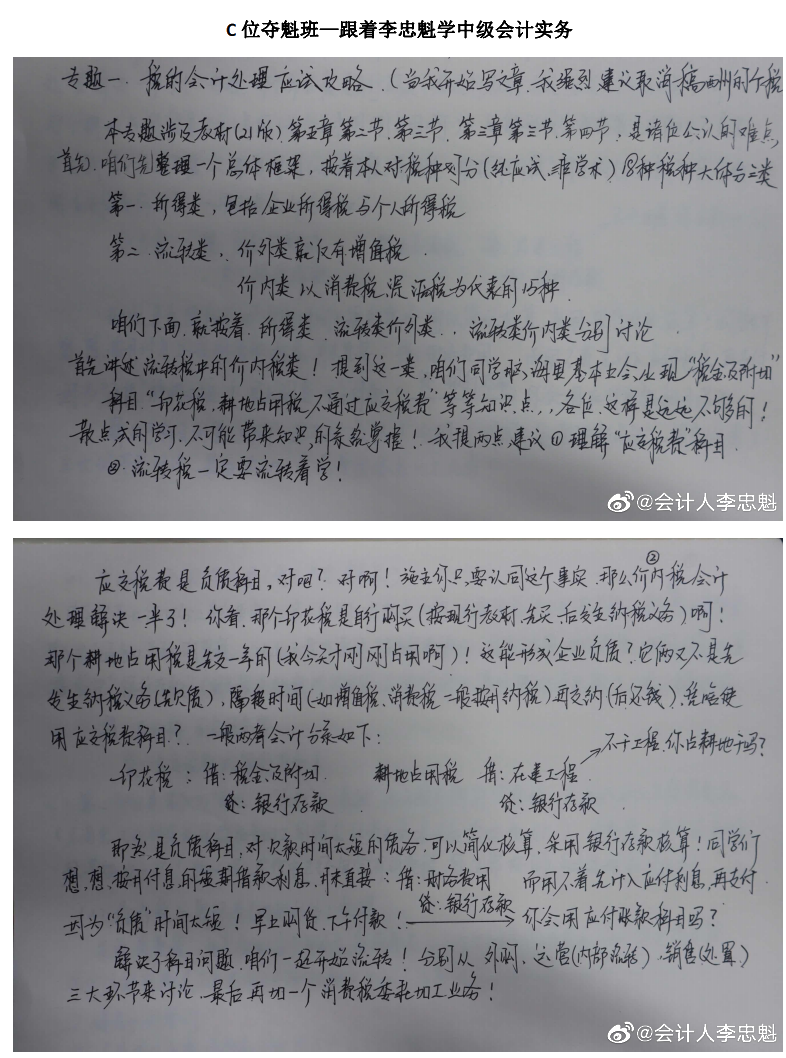 C位夺魁班—跟着李忠魁学中级会计实务
专题一. 税的会计处理应试攻略.(当我开始写文章.我强烈建议取消稿酬的个税
本专题涉及教材(21版).第五章第二节.第三节.第三章第三节.第四节,是诸位公认的难点
首先.咱们先整理一个总体框架,按着本人对税种划分(纯应试.非学术)18种税种大体分三类
第一.所得类,包括企业所得税与个人所得税
第二.流转类,价外类就仅有增值税.
价内类以消费税,资源税为代表的15种.
咱们下面.就按着.所得类.流转类价外类..流转类价内类分别讨论
首先讲述流转税中的价内税类!提到这一类,咱们同学脑海里基本上会出现"税金及附加"
科目."印花税,耕地占用税不通过应交税费"等等知识点,,各位.这样是远远不够的!
散点式的学习.不可能带来知识的系统掌握!我提两点建议①理解"应交税费"科目.
②.流转税一定要流转着学!
@会计人李忠魁
应交税费是负债科目,对吧?对啊!施主你只要认同这个事实.那么价内税会计
②
处理解决一半了!你看.那个印花税是自行购买(按现行教材.先买.后发生纳税义务)啊!
那个耕地占用税是先交一年的(我今天才刚刚占用啊)!这能形成企业负债?它俩又不是先
发生纳税义务(先欠债),隔段时间(如增值税.消费税一般按月纳税)再交纳(后还钱).凭啥使
用应交税费科目?一般两者会计分录如下:
不干工程.你占耕地干吗?
印花税:借:税金及附加 耕地占用税 借:在建工程
贷:银行存款. 贷:银行存款.
既然是负债科目,对欠款时间太短的债务.可以简化核算.采用银行存款核算!同学们
想,想,按月付息的短期借款利息,月末直接:借:财务费用 而用不着先计入应付利息,再支付.
贷:银行存款
因为"负债"时间太短!早上购货.下午付款! 你会用应付账款科目吗?
解决了科目问题.咱们一起开始流转!分别从外购,运营(内部流转),销售(处置)
三大环节来讨论.最后再加一个消费税委托加工业务!
@会计人李忠魁